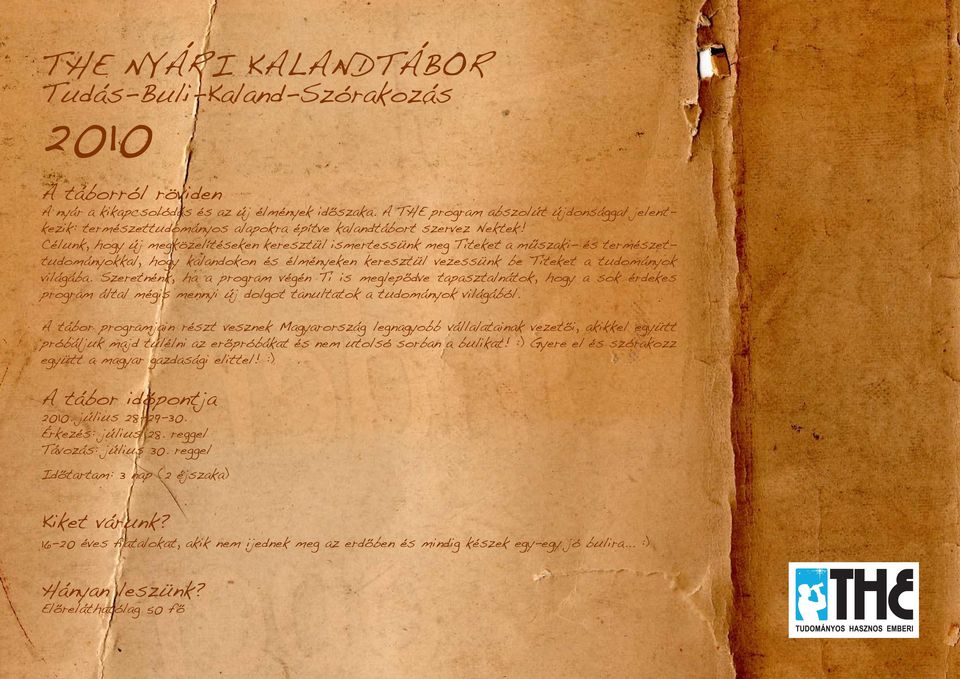 THE NYÁRI KALANDTÁBOR
Tudás-Buli-Kaland-Szórakozás
2010
A táborról röviden
A nyár a kikapcsolódás és az új élmények időszaka. A THE program abszolút újdonsággal jelent-
kezik: természettudományos alapokra építve kalandtábort szervez Nektek!
Célunk, hogy új megközelítéseken keresztül ismertessünk meg Titeket a műszaki- és természet-
tudományokkal, hogy kalandokon és élményeken keresztül vezessünk be Titeket a tudományok
világába. Szeretnénk, ha a program végén Ti is meglepődve tapasztalnátok, hogy a sok érdekes
program által mégis mennyi új dolgot tanultatok a tudományok világából.
A tábor programjain részt vesznek Magyarország legnagyobb vállalatainak vezetői, akikkel együtt
próbáljuk majd túlélni az erőpróbákat és nem utolsó sorban a bulikat! :) Gyere el és szórakozz
együtt a magyar gazdasági elittel! :)
A tábor időpontja
2010. július 28-29-30.
Érkezés: július 28. reggel
Távozás: július 30. reggel
Időtartam: 3 nap (2 éjszaka)
Kiket várunk?
16-20 éves fiatalokat, akik nem ijednek meg az erdőben és mindig készek egy-egy jó bulira... :)
Hányan leszünk?
Előreláthatólag 50 fő
THE
TUDOMÁNYOS HASZNOS EMBERI